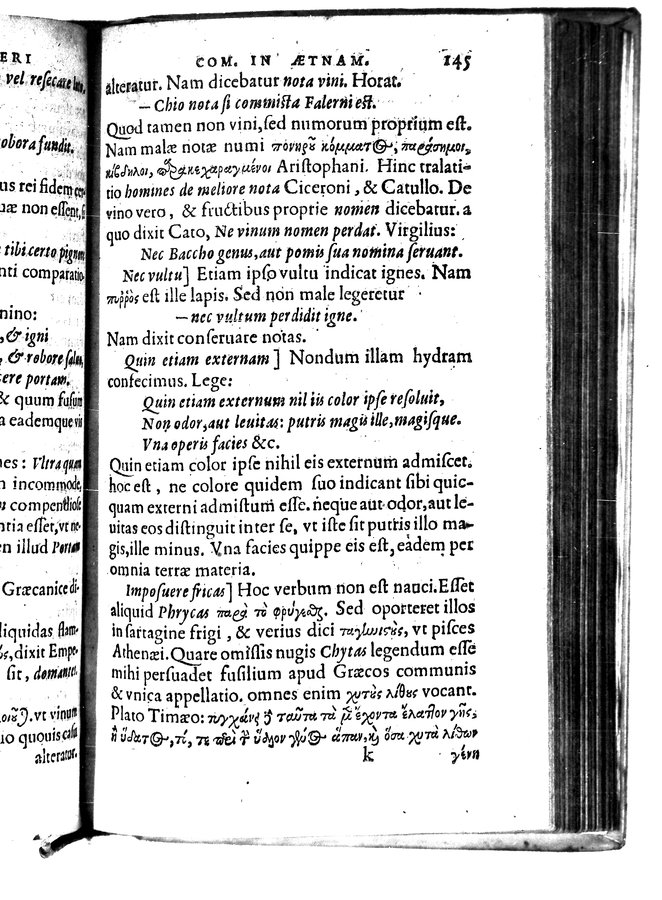 ERI
vel resecare
robora fundit.
us rei fidem
uæ non essent,
tibi certo pignus
nti comparatio
nino:
, & igni
, & robore
ere portam.
& quum
a eademque vis
nes : Vltra quam
n incommode,
n compendiose
ntia esset, vt ne-
en illud
Græcanice di-
liquidas flam-
, dixit Empe-
sit,
vt vinum
uo quouis
alteratur.
COM. IN ÆTNAM. 145
alteratur. Nam dicebatur nota vini. Horat.
— Chio nota si commista Falerni est.
Quod tamen non vini, sed numorum proprium est.
Nam malæ notæ numi πονηροῦ κόμματος, παράσημοι,
κίβδηλοι, παρακεχαραγμένοι Aristophani. Hinc tralati-
tio homines de meliore nota Ciceroni, & Catullo. De
vino vero, & fructibus proprie nomen dicebatur. a
quo dixit Cato, Ne vinum nomen perdat. Virgilius:
Nec Baccho genus, aut pomis sua nomina seruant.
Nec vultu] Etiam ipso vultu indicat ignes. Nam
πυῤῥὸς est ille lapis. Sed non male legeretur
— nec vultum perdidit igne.
Nam dixit conseruare notas.
Quin etiam externam] Nondum illam hydram
confecimus. Lege:
Quin etiam externum nil iis color ipse resoluit,
Non odor, aut leuitas: putris magis ille, magisque.
Vna operis facies &c.
Quin etiam color ipse nihil eis externum admiscet.
hoc est, ne colore quidem suo indicant sibi quic-
quam externi admistum esse. neque aut odor, aut le-
uitas eos distinguit inter se, vt iste sit putris illo ma-
gis, ille minus. Vna facies quippe eis est, eadem per
omnia terræ materia.
Imposuere fricas] Hoc verbum non est nauci. Esset
aliquid Phrycas παρὰ τὸ φρύγεσθαι. Sed oporteret illos
in sartagine frigi, & verius dici ταγηνιστοὺς, vt pisces
Athenæi. Quare omissis nugis Chytas legendum esse
mihi persuadet fusilium apud Græcos communis
& vnica appellatio. omnes enim χυτοὺς λίθους vocant.
Plato Timæo: τυγχάνει δὲ ταῦτα τὰ μὲν ἔχοντα ἔλαττον γῆς,
ἢ ὕδατος, τό, τε περὶ τὴν ὕαλον γένος ἅπαν, καὶ ὅσα χυτὰ λίθων
k γένη